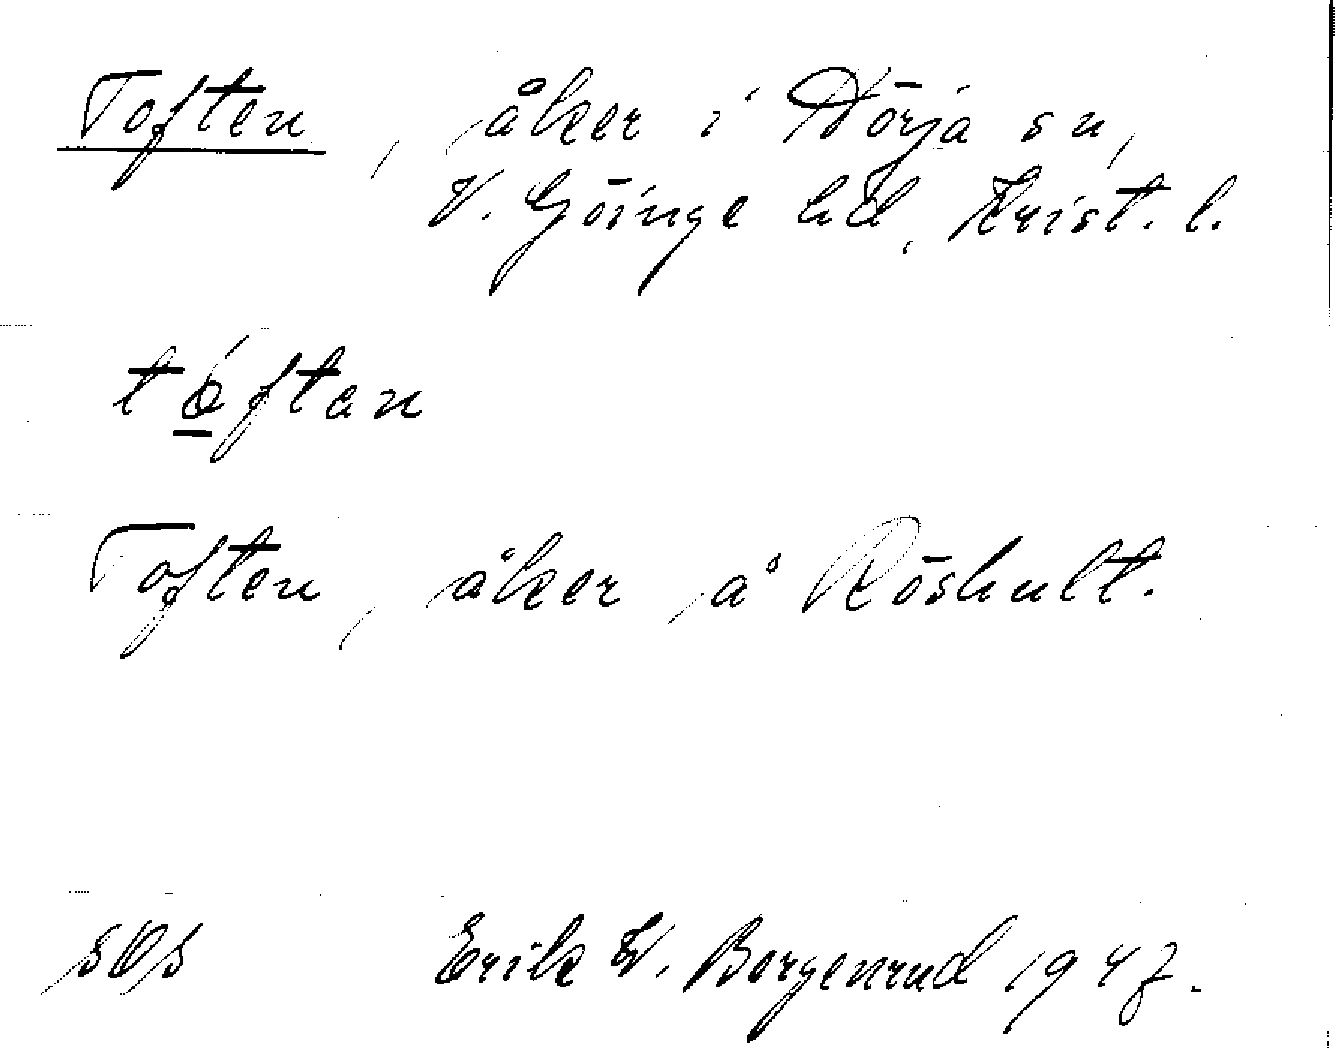 Toften, åker i Nörja sn,
V. Göinge hd, Krist. l.
tóftan
Toften, åker å Röshult.
Erik W. Bergenrud 1947.